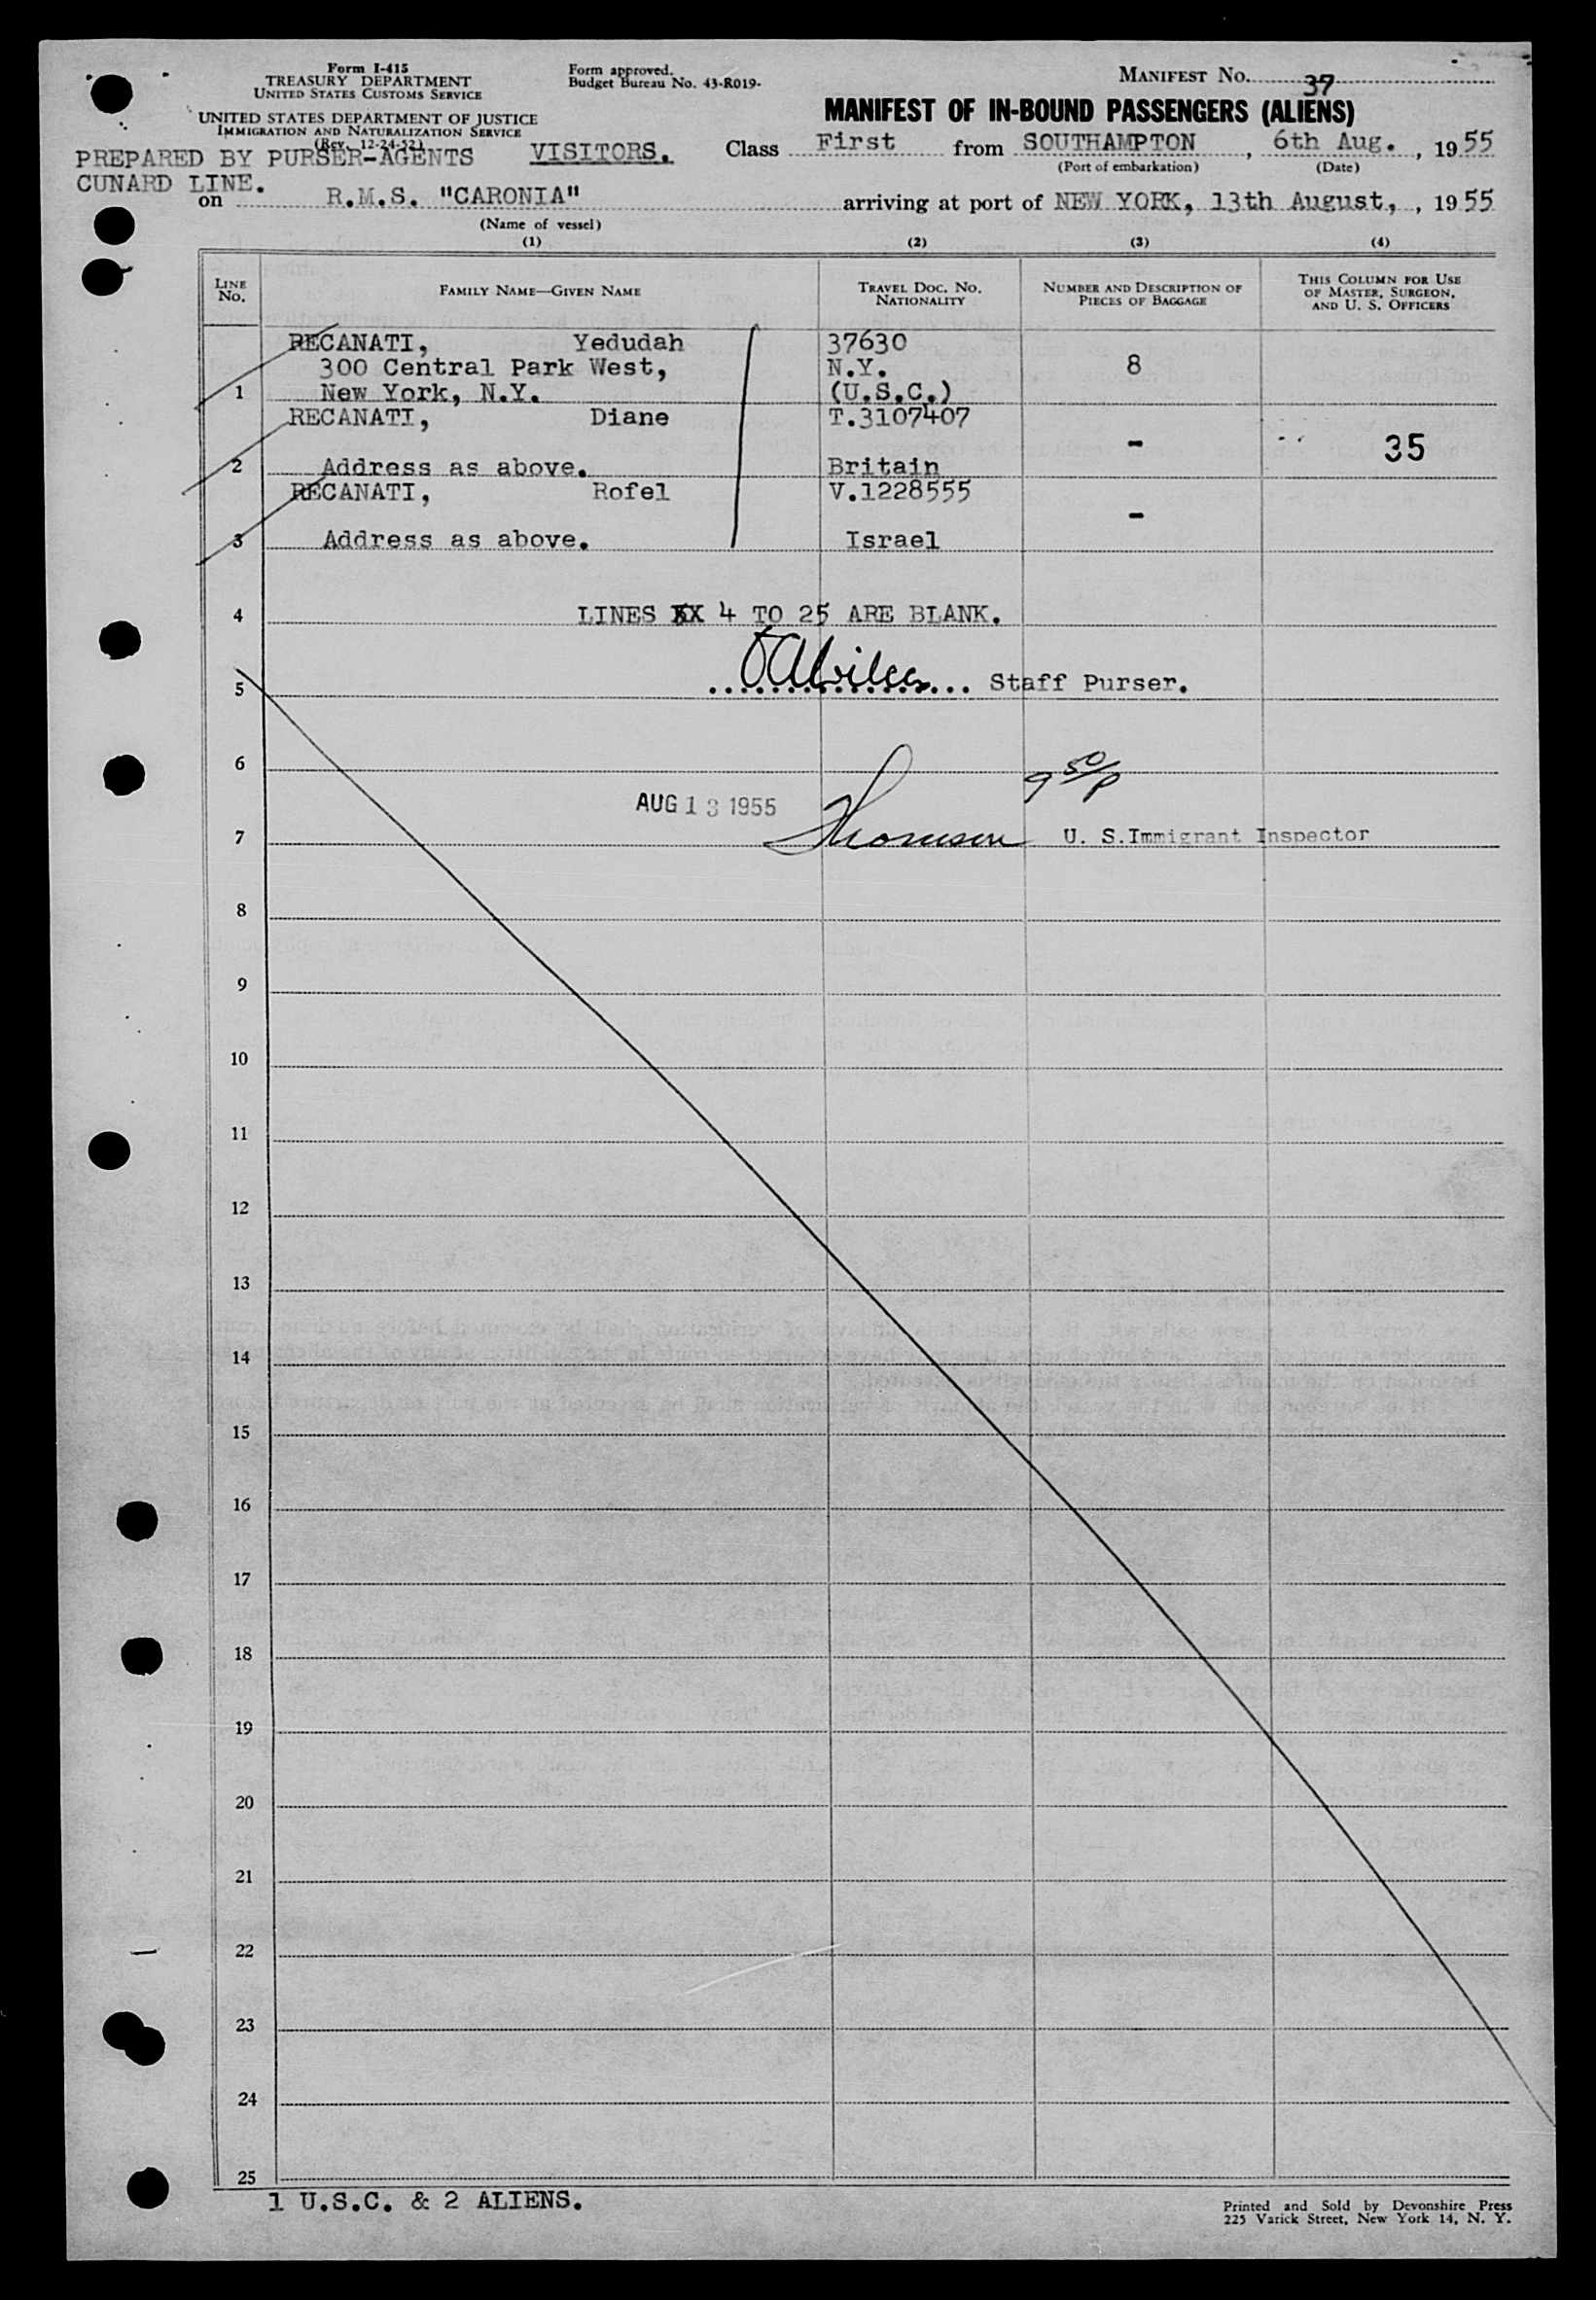 Form I-415
TREASURY DEPARTMENT
UNITED STATES CUSTOMS SERVICE
UNITED STATES DEPARTMENT OF JUSTICE
IMMIGRATION AND NATURALIZATION SERVICE
(Rev. 12-24-52)
Form approved.
Budget Bureau No. 43-R019-
MANIFEST No. 37
MANIFEST OF IN-BOUND PASSENGERS (ALIENS)
PREPARED BY PURSER-AGENTS VISITORS. Class First from SOUTHAMPTON, 6th Aug., 19 55
(Port of embarkation) (Date)
CUNARD LINE.
on R.M.S. "CARONIA" arriving at port of NEW YORK, 13th August, , 19 55
(Name of vessel)
(1) (2) (3) (4)
LINE No. FAMILY NAME—GIVEN NAME TRAVEL DOC. NO. NATIONALITY NUMBER AND DESCRIPTION OF PIECES OF BAGGAGE THIS COLUMN FOR USE OF MASTER, SURGEON, AND U. S. OFFICERS
RECANATI, Yedudah 37630
300 Central Park West, N.Y. 8
1 New York, N.Y. (U.S.C.)
RECANATI, Diane T.3107407
- 35
2 Address as above. Britain
RECANATI, Rofel V.1228555
-
3 Address as above. Israel
4 LINES XX 4 TO 25 ARE BLANK.
5 Staff Purser.
6 9 50/P
AUG 13 1955
7 Thomson U. S. Immigrant Inspector
8
9
10
11
12
13
14
15
16
17
18
19
20
21
22
23
24
25
1 U.S.C. & 2 ALIENS.
Printed and Sold by Devonshire Press
225 Varick Street, New York 14, N. Y.